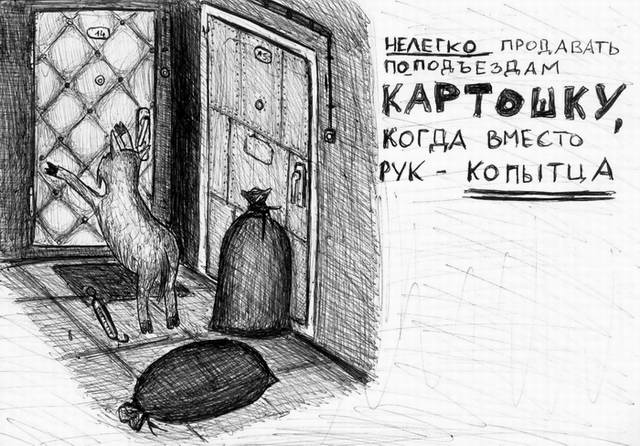 НЕЛЕГКО ПРОДАВАТЬ
ПО ПОДЪЕЗДАМ
КАРТОШКУ,
КОГДА ВМЕСТО
РУК - КОПЫТЦА
14